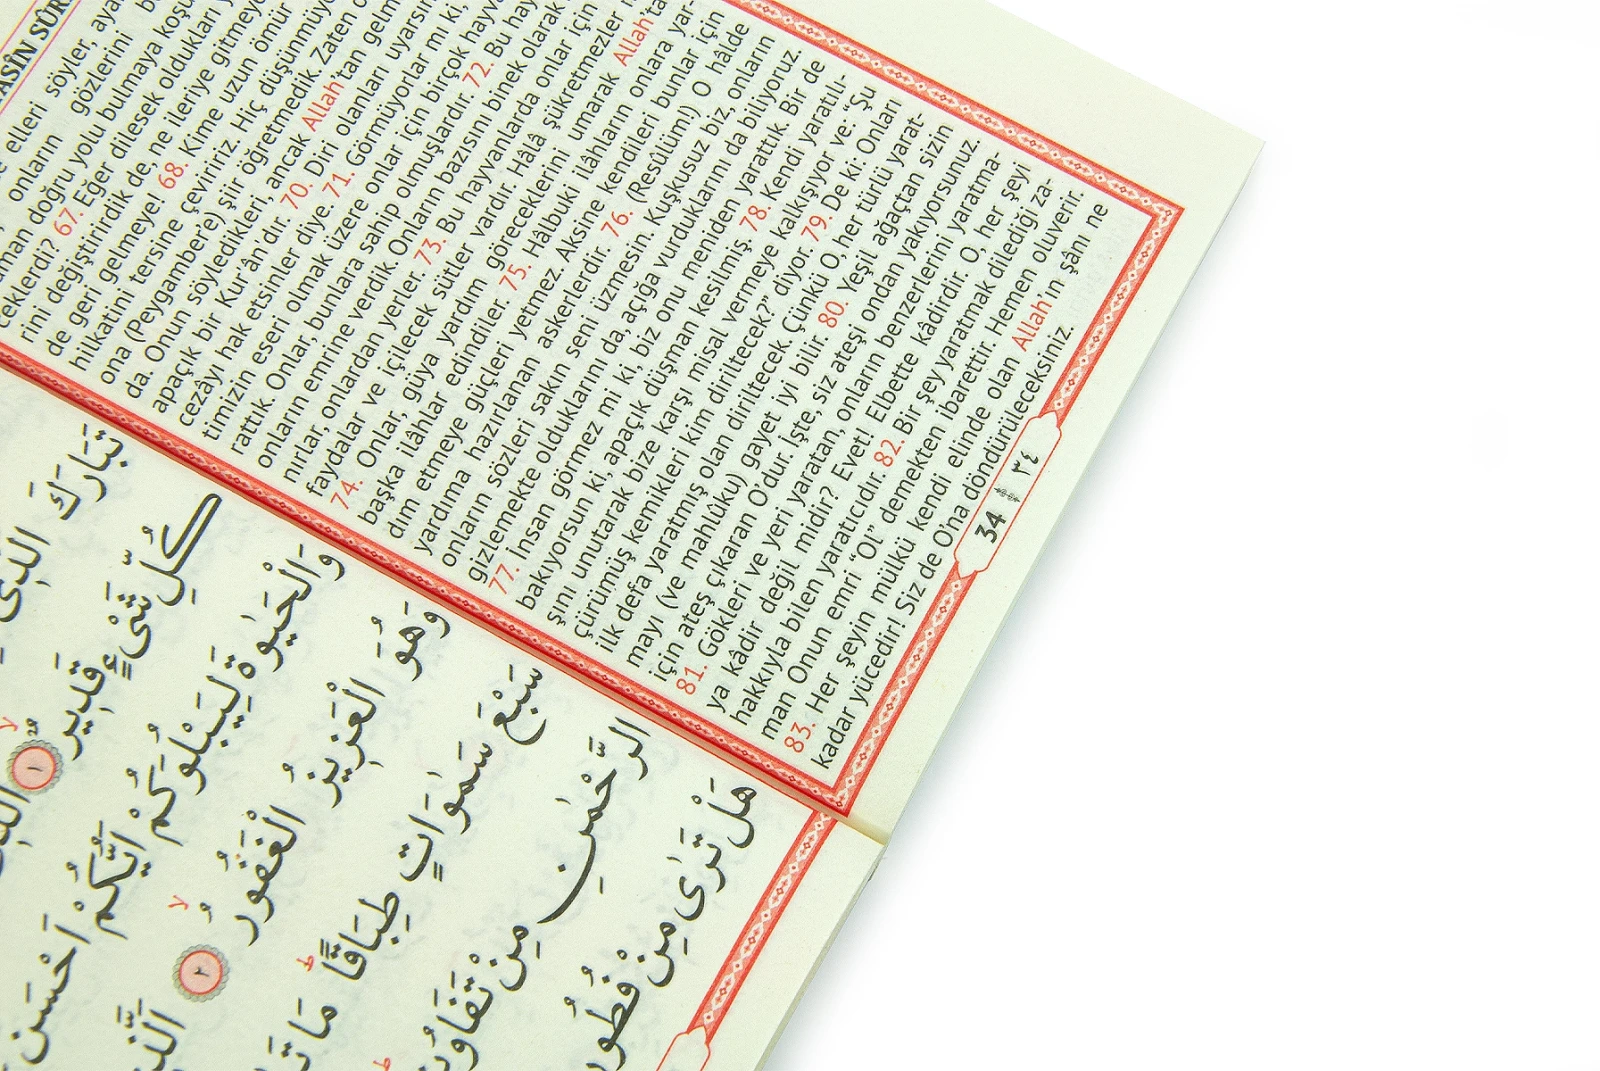 ÂSÎN SÛR
elleri söyler,
onların gözlerini
doğru yolu bulmaya
67. Eğer dilesek oldukları
rini değiştirirdik de, ne ileriye gitmeye
de geri gelmeye! 68. Kime uzun ömür
hilkatini tersine çeviririz. Hiç
ona (Peygambere) şiir öğretmedik. Zaten
da. Onun söyledikleri, ancak Allah’tan
apaçık bir Kur’ân’dır. 70. Diri olanları
cezâyı hak etsinler diye. 71. Görmüyorlar mı ki,
timizin eseri olmak üzere onlar için birçok
rattık. Onlar, bunlara sahip olmuşlardır. 72. Bu
onların emrine verdik. Onların bazısını binek olarak
nırlar, onlardan yerler. 73. Bu hayvanlarda onlar için
faydalar ve içilecek sütler vardır. Hâlâ şükretmezler
74. Onlar, güya yardım göreceklerini umarak Allah’ta
başka ilâhlar edindiler. 75. Hâlbuki ilâhların onlara yar-
dım etmeye güçleri yetmez. Aksine kendileri bunlar için
yardıma hazırlanan askerlerdir. 76. (Resûlüm!) O hâlde
onların sözleri sakın seni üzmesin. Kuşkusuz biz, onların
gizlemekte olduklarını da, açığa vurduklarını da biliyoruz.
77. İnsan görmez mi ki, biz onu meniden yarattık. Bir de
bakıyorsun ki, apaçık düşman kesilmiş. 78. Kendi yaratıl-
şını unutarak bize karşı misal vermeye kalkışıyor ve: “Şu
çürümüş kemikleri kim diriltecek?” diyor. 79. De ki: Onları
ilk defa yaratmış olan diriltecek. Çünkü O, her türlü yarat-
mayı (ve mahlûku) gayet iyi bilir. 80. Yeşil ağaçtan sizin
için ateş çıkaran O’dur. İşte, siz ateşi ondan yakıyorsunuz.
81. Gökleri ve yeri yaratan, onların benzerlerini yaratma-
ya kâdir değil midir? Evet! Elbette kâdirdir. O, her şeyi
hakkıyla bilen yaratıcıdır. 82. Bir şey yaratmak dilediği za-
man Onun emri “Ol” demekten ibarettir. Hemen oluverir.
83. Her şeyin mülkü kendi elinde olan Allah’ın şânı ne
kadar yücedir! Siz de O’na döndürüleceksiniz.
34 ٣٤
تَبَارَكَ الَّذِى
كُلِّ شَىْءٍ قَدِيرٌ ١
وَالْحَيٰوةَ لِيَبْلُوَكُمْ اَيُّكُمْ اَحْسَنُ
وَهُوَ الْعَزِيزُ الْغَفُورُ ٢ اَلَّذِى
سَبْعَ سَمٰوَاتٍ طِبَاقًا مَا
الرَّحْمٰنِ مِنْ تَفَاوُتٍ
هَلْ تَرٰى مِنْ فُطُورٍ